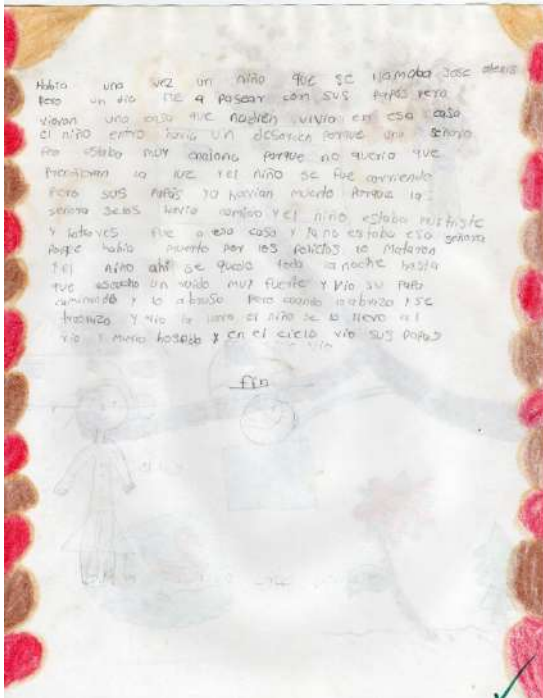 Había una vez un niño que se llamaba Jose alexis
Pero un dia fue a pasear con sus papás pero
vieron una casa que nadien vivia en esa casa
el niño entro havia un desorden porque una señora
estaba muy enojona porque no queria que
prendieran la luz y el niño se fue corriendo
Pero sus papás ya havian muerto porque la
señora selos havia comino y el niño estaba mustriste
fue a esa casa y ya no estaba esa señora
Porque habia muerto por los policias lo mataron
y el niño ahi se quedo toda la noche hasta
que escucho un ruido muy fuerte y vio su papa
caminando y lo abraso Pero cuando lo abrazo
y vio la el niño se lo llevo al
rio y murio y en el cielo vio sus papas
fin